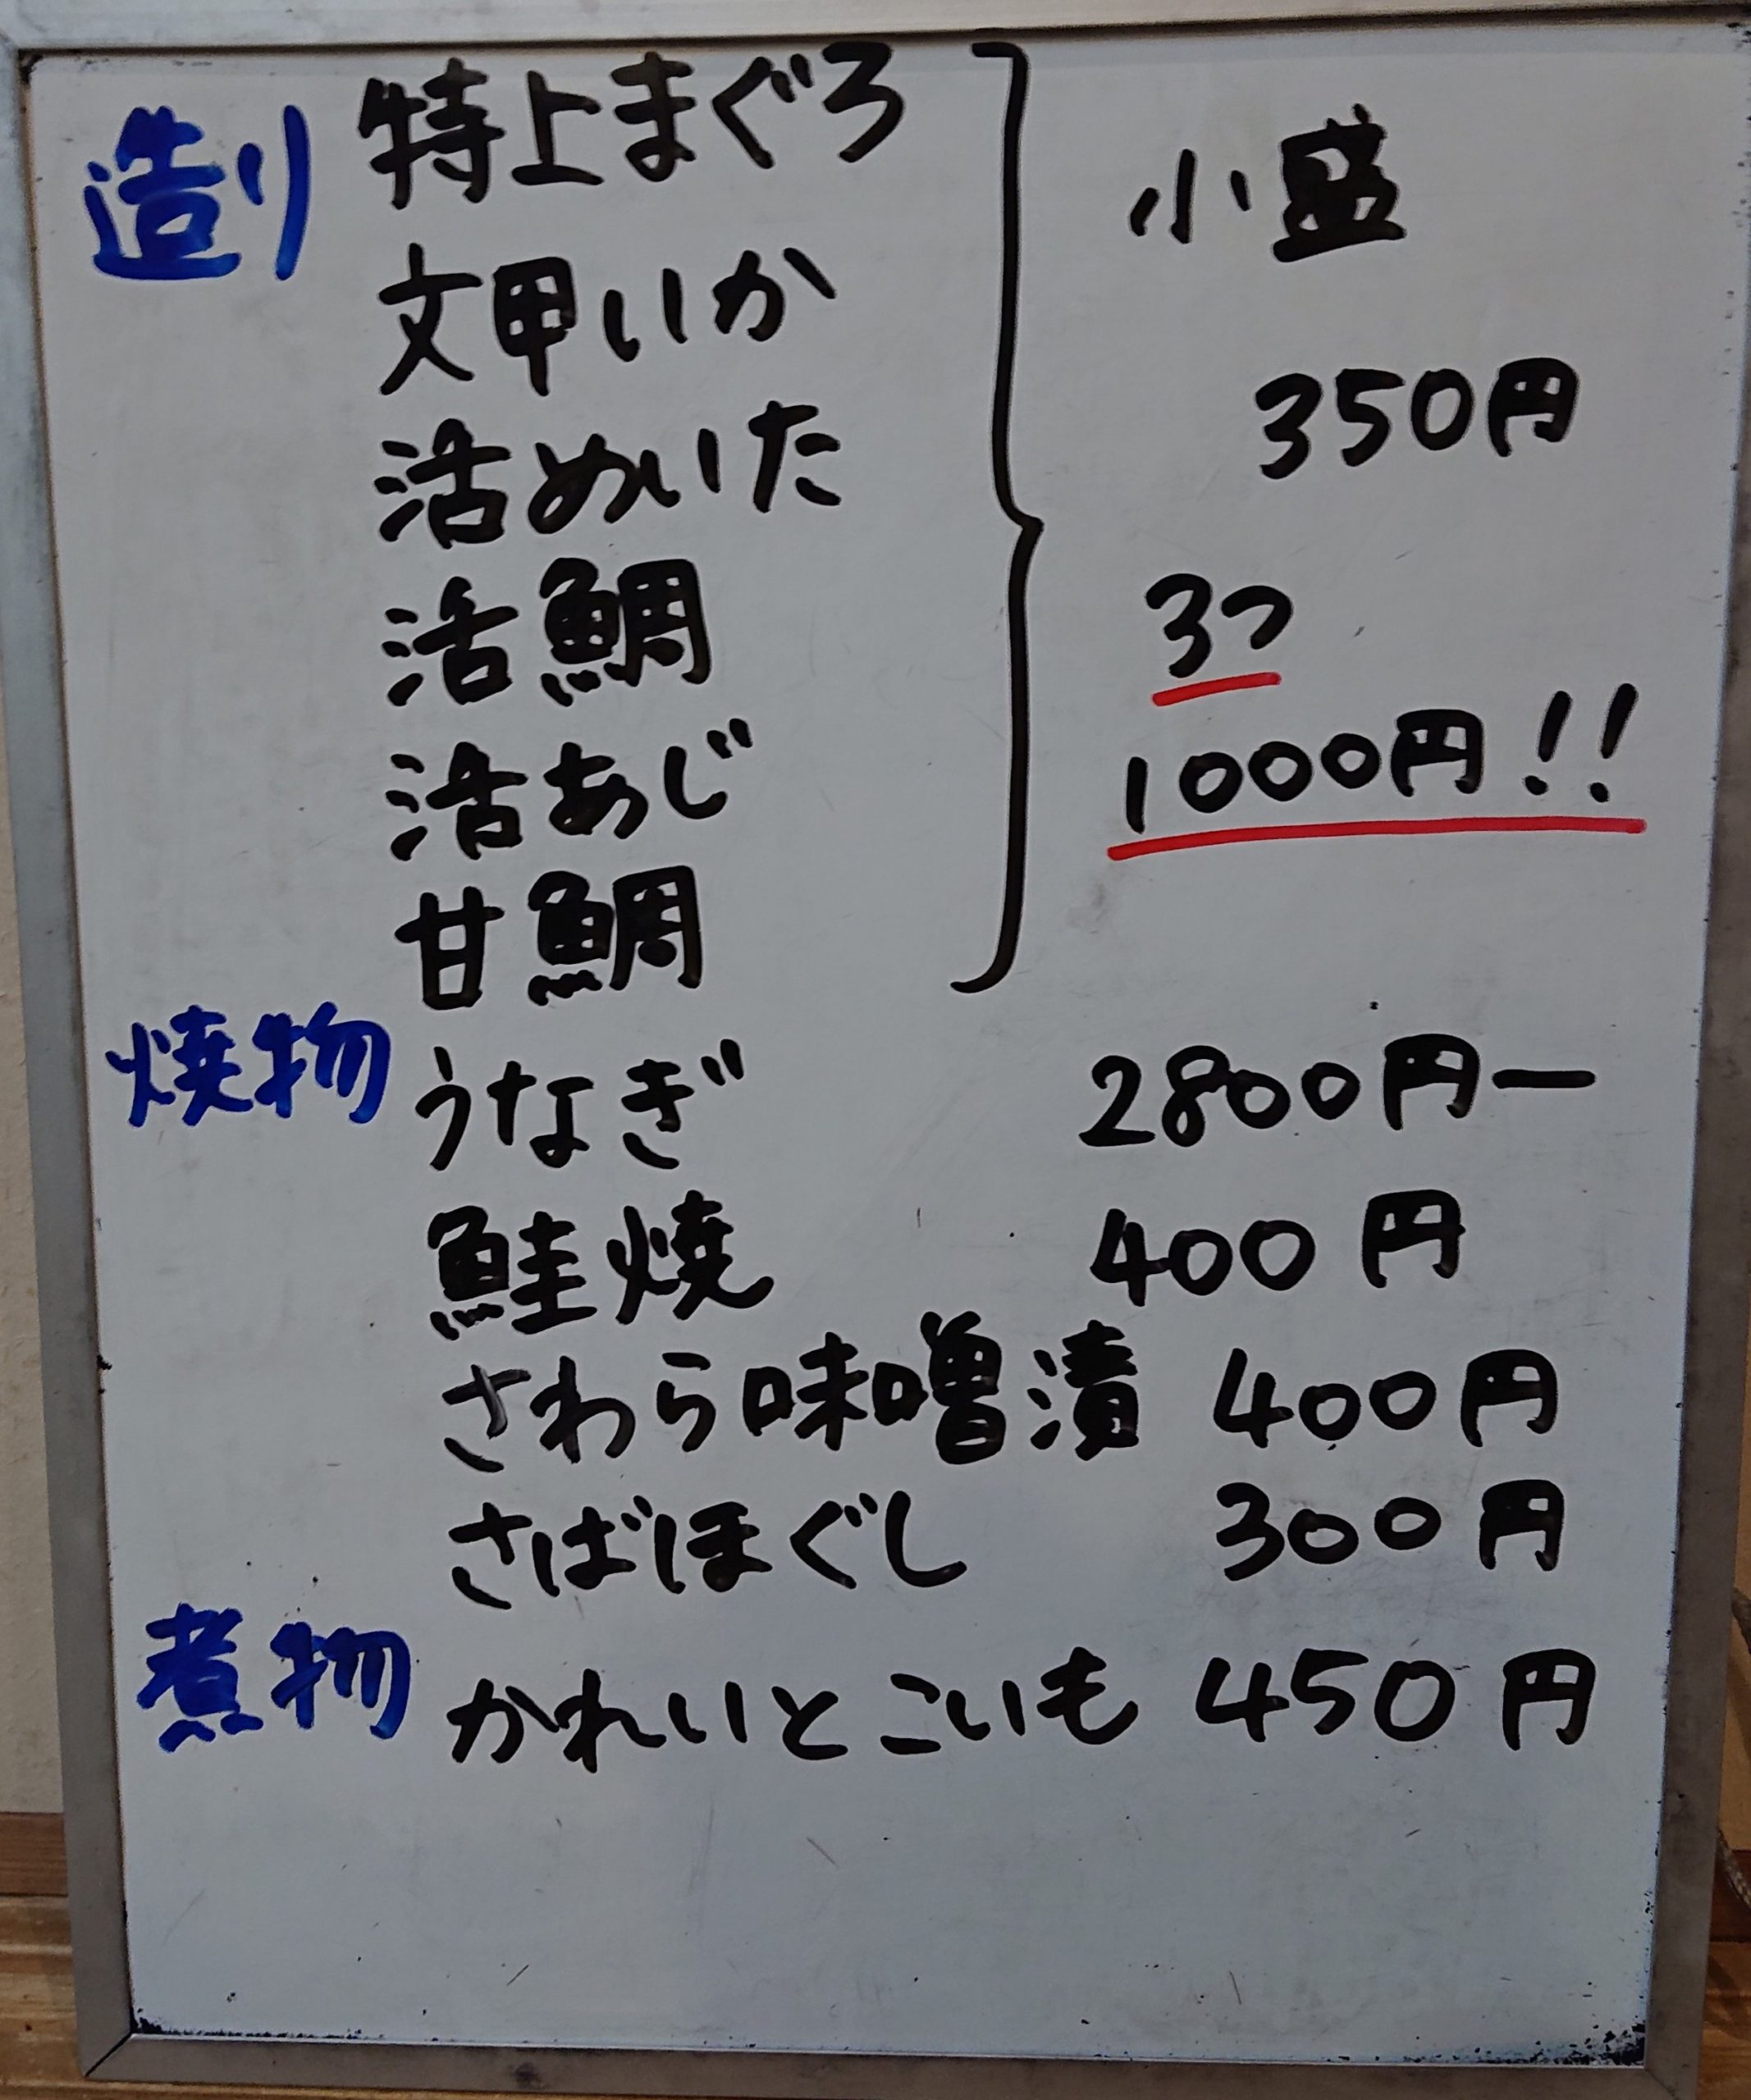 造り 特上まぐろ
文甲いか
活めいた
活鯛
活あじ
甘鯛
小盛
350円
3つ
1000円!!
焼物 うなぎ 2800円ー
鮭焼 400円
さわら味噌漬 400円
さばほぐし 300円
煮物 かれいとこいも 450円